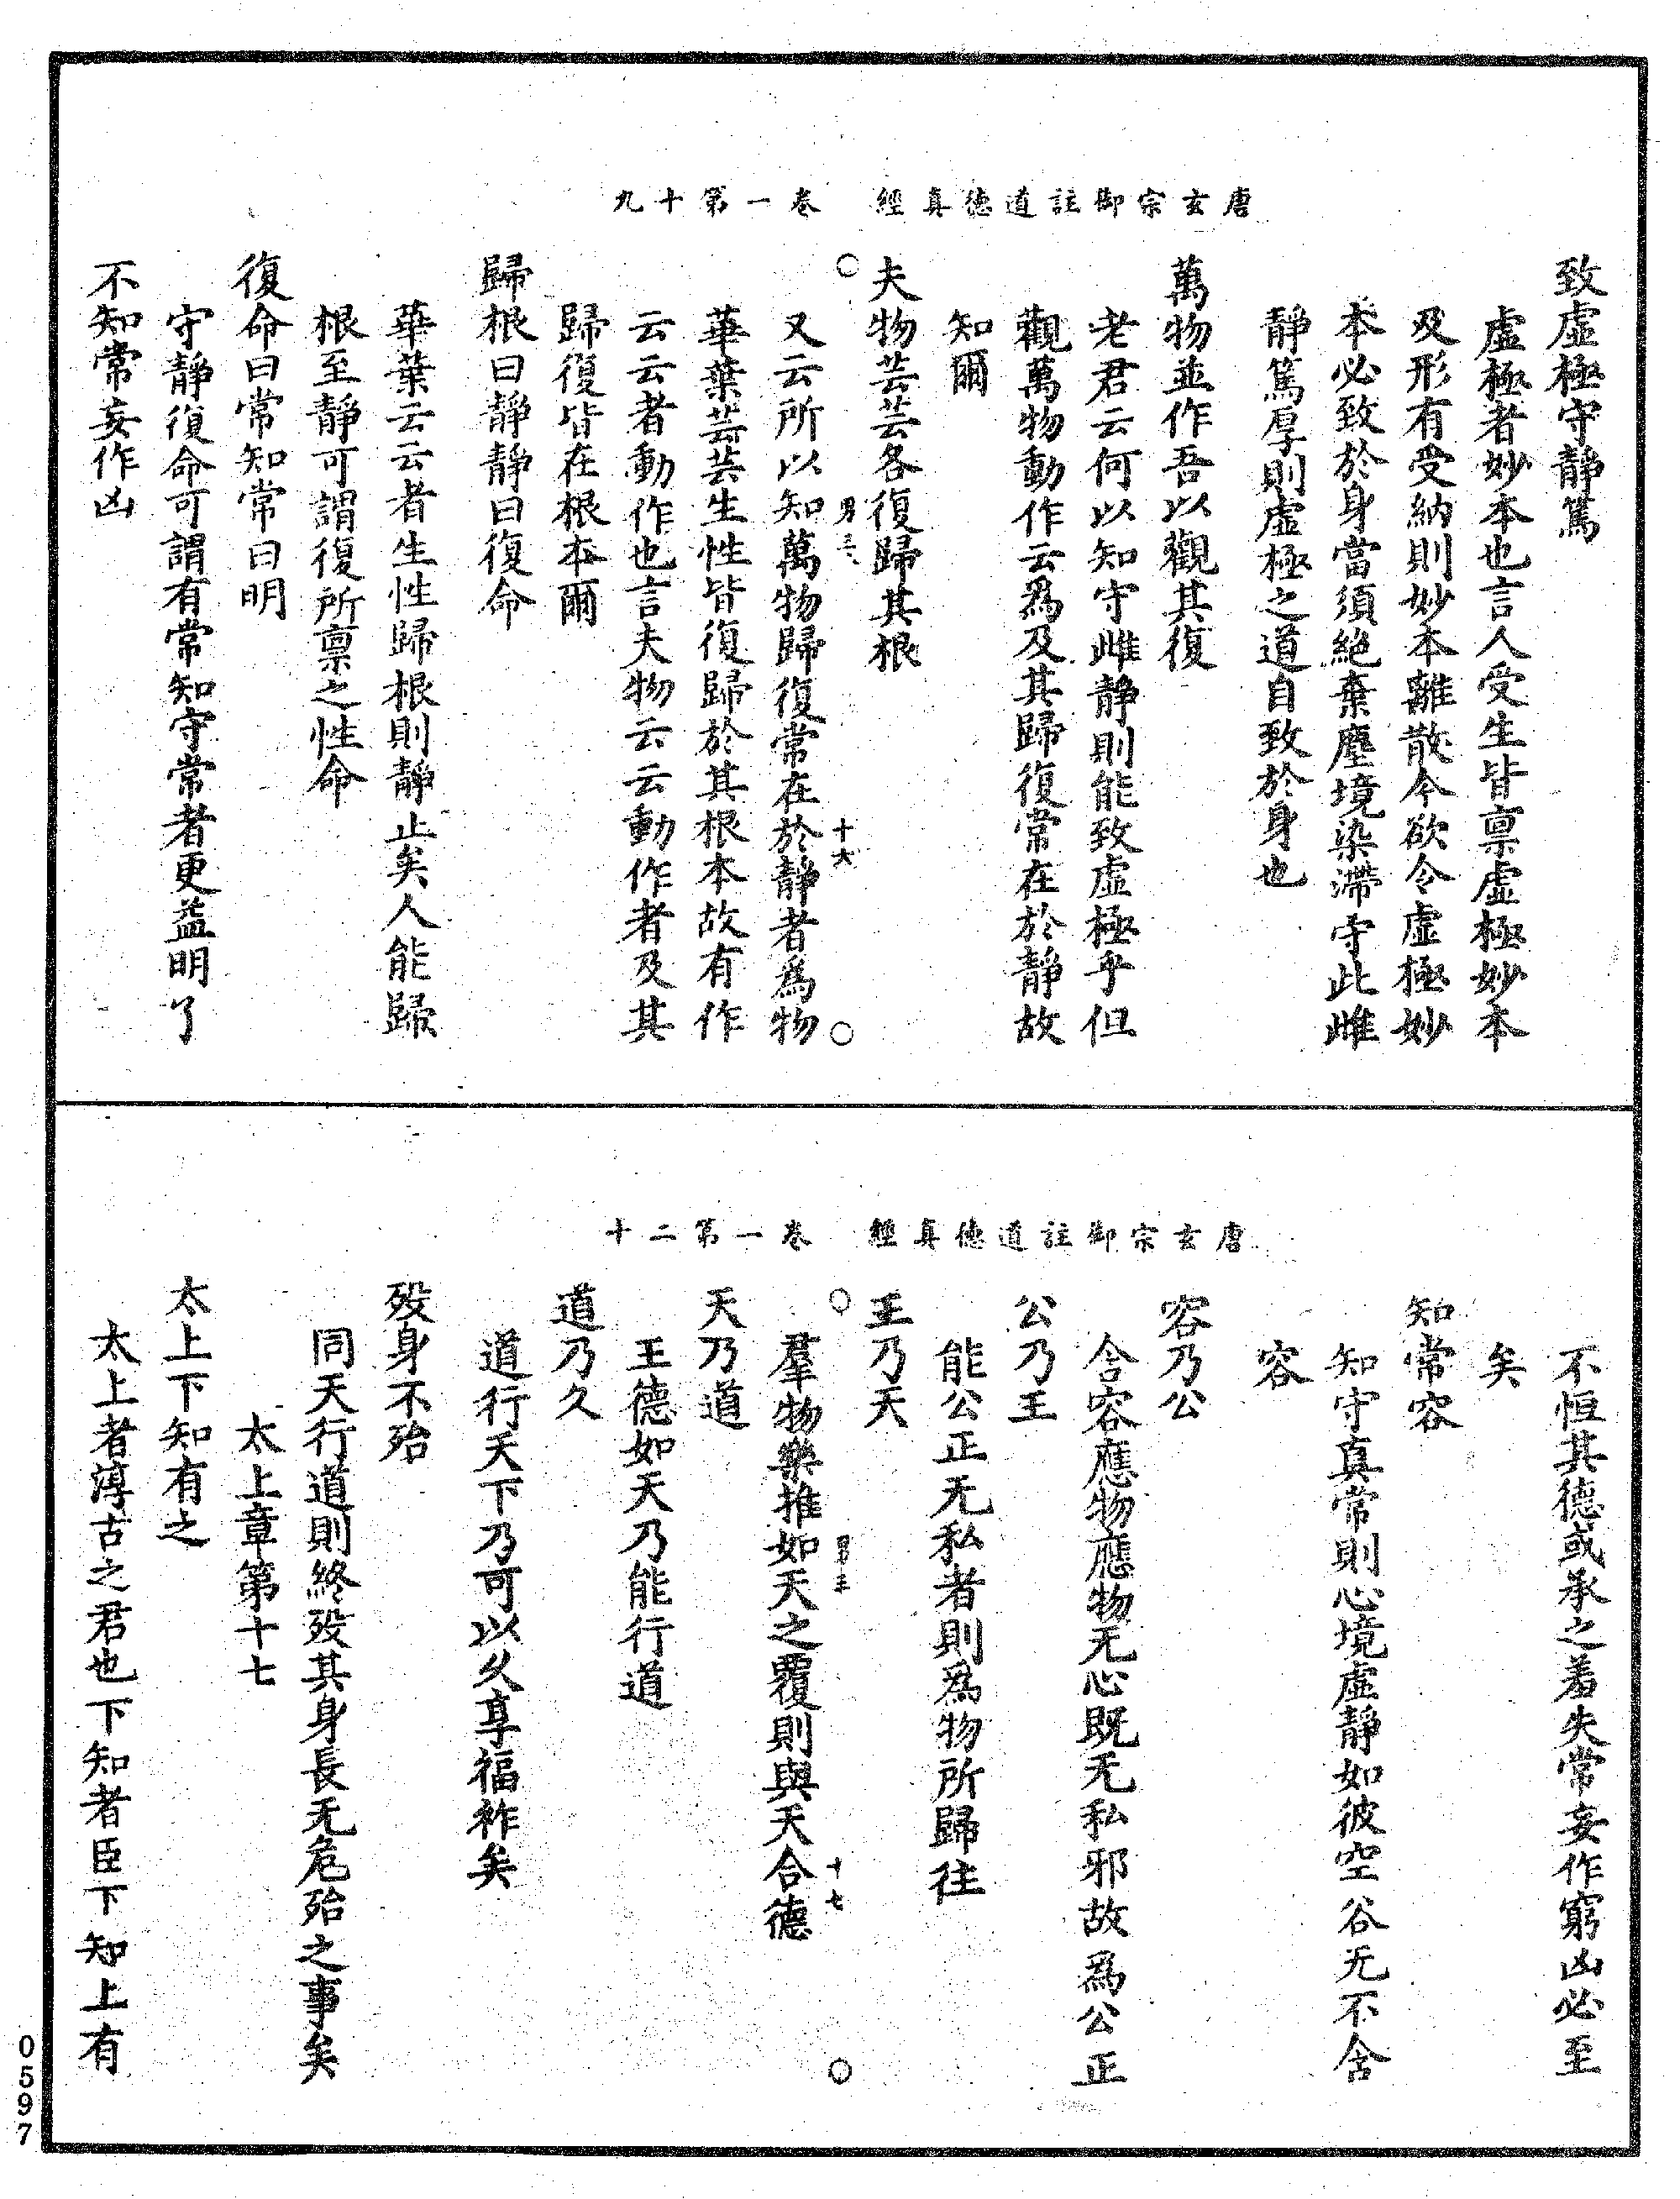 唐玄宗御註道德真經　卷一第十九
致虛極守靜篤
虛極者妙本也言人受生皆稟虛極妙本
及形有受納則妙本離散今欲令虛極妙
本必致於身當須絕棄塵境染滯守此雌
靜篤厚則虛極之道自致於身也
萬物並作吾以觀其復
老君云何以知守雌靜則能致虛極乎但
觀萬物動作云為及其歸復常在於靜故
知爾
夫物芸芸各復歸其根
十六
又云所以知萬物歸復常在於靜者為物
華葉芸芸生性皆復歸於其根本故有作
云云者動作也言夫物云云動作者及其
歸復皆在根本爾
歸根曰靜靜曰復命
華葉云云者生性歸根則靜止矣人能歸
根至靜可謂復所稟之性命
復命曰常知常曰明
守靜復命可謂有常知守常者更益明了
不知常妄作凶
唐玄宗御註道德真經　卷一第二十
不恒其德或承之羞失常妄作窮凶必至
矣
知常容
知守真常則心境虛靜如彼空谷无不含
容
容乃公
含容應物應物无心既无私邪故為公正
公乃王
能公正无私者則為物所歸往
王乃天
十七
羣物樂推如天之覆則與天合德
天乃道
王德如天乃能行道
道乃久
道行天下乃可以久享福祚矣
歿身不殆
同天行道則終歿其身長无危殆之事矣
太上章第十七
太上下知有之
太上者淳古之君也下知者臣下知上有
0597